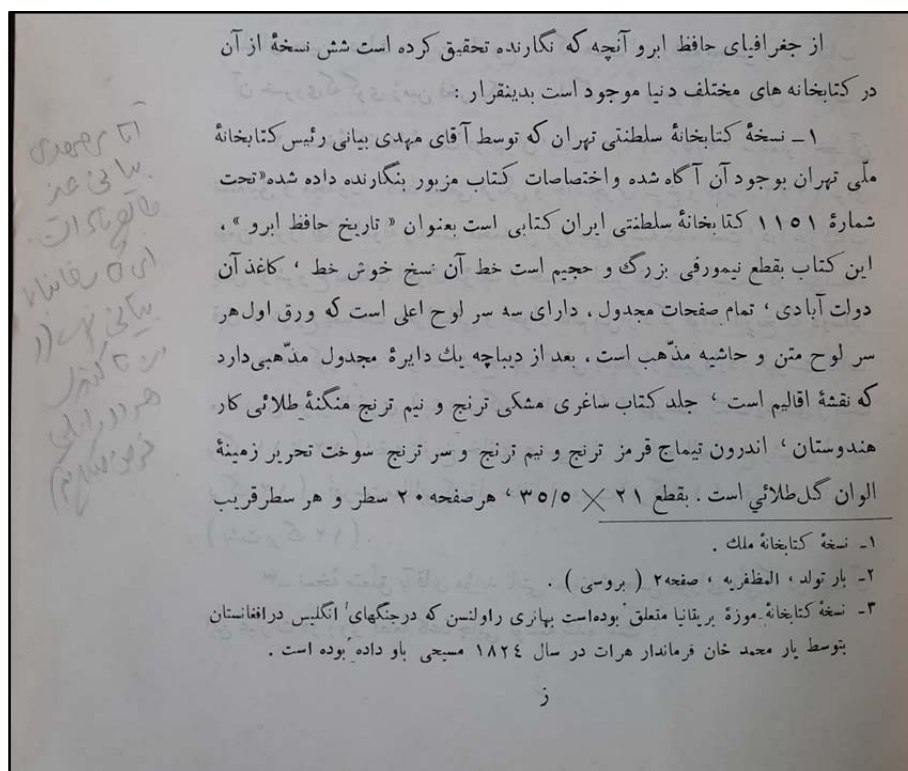 از جغرافیای حافظ ابرو آنچه که نگارنده تحقیق کرده است شش نسخهٔ از آن
در کتابخانه های مختلف دنیا موجود است بدینقرار :
۱ـ نسخهٔ کتابخانهٔ سلطنتی تهران که توسط آقای مهدی بیانی رئیس کتابخانهٔ
ملّی تهران بوجود آن آگاه شده واختصاصات کتاب مزبور بنگارنده داده شده «تحت
شمارهٔ ۱۱۵۱ کتابخانهٔ سلطنتی ایران کتابی است بعنوان « تاریخ حافظ ابرو » ،
این کتاب بقطع نیمورقی بزرگ و حجیم است خط آن نسخ خوش خط ، کاغذ آن
دولت آبادی ، تمام صفحات مجدول ، دارای سه سر لوح اعلی است که ورق اول هر
سر لوح متن و حاشیه مذّهب است ، بعد از دیباچه یك دایرهٔ مجدول مذّهبی دارد
که نقشهٔ اقالیم است ، جلد کتاب ساغری مشکی ترنج و نیم ترنج منگنهٔ طلائی کار
هندوستان ، اندرون تیماج قرمز ترنج و نیم ترنج و سر ترنج سوخت تحریر زمینهٔ
الوان گل طلائي است . بقطع ۲۱ × ۳۵/۵ ، هر صفحه ۲۰ سطر و هر سطر قریب
۱ـ نسخهٔ کتابخانهٔ ملك .
۲ـ بار تولد ، المظفریه ، صفحه ۲ ( بروسی ) .
۳ـ نسخهٔ کتابخانهٔ موزهٔ بریقانیا متعلق بوده‌است بهانری راولنسن که درجنگهای انگلیس درافغانستان
بتوسط یار محمد خان فرماندار هرات در سال ۱۸۲٤ مسیحی باو داده بوده است .
ز